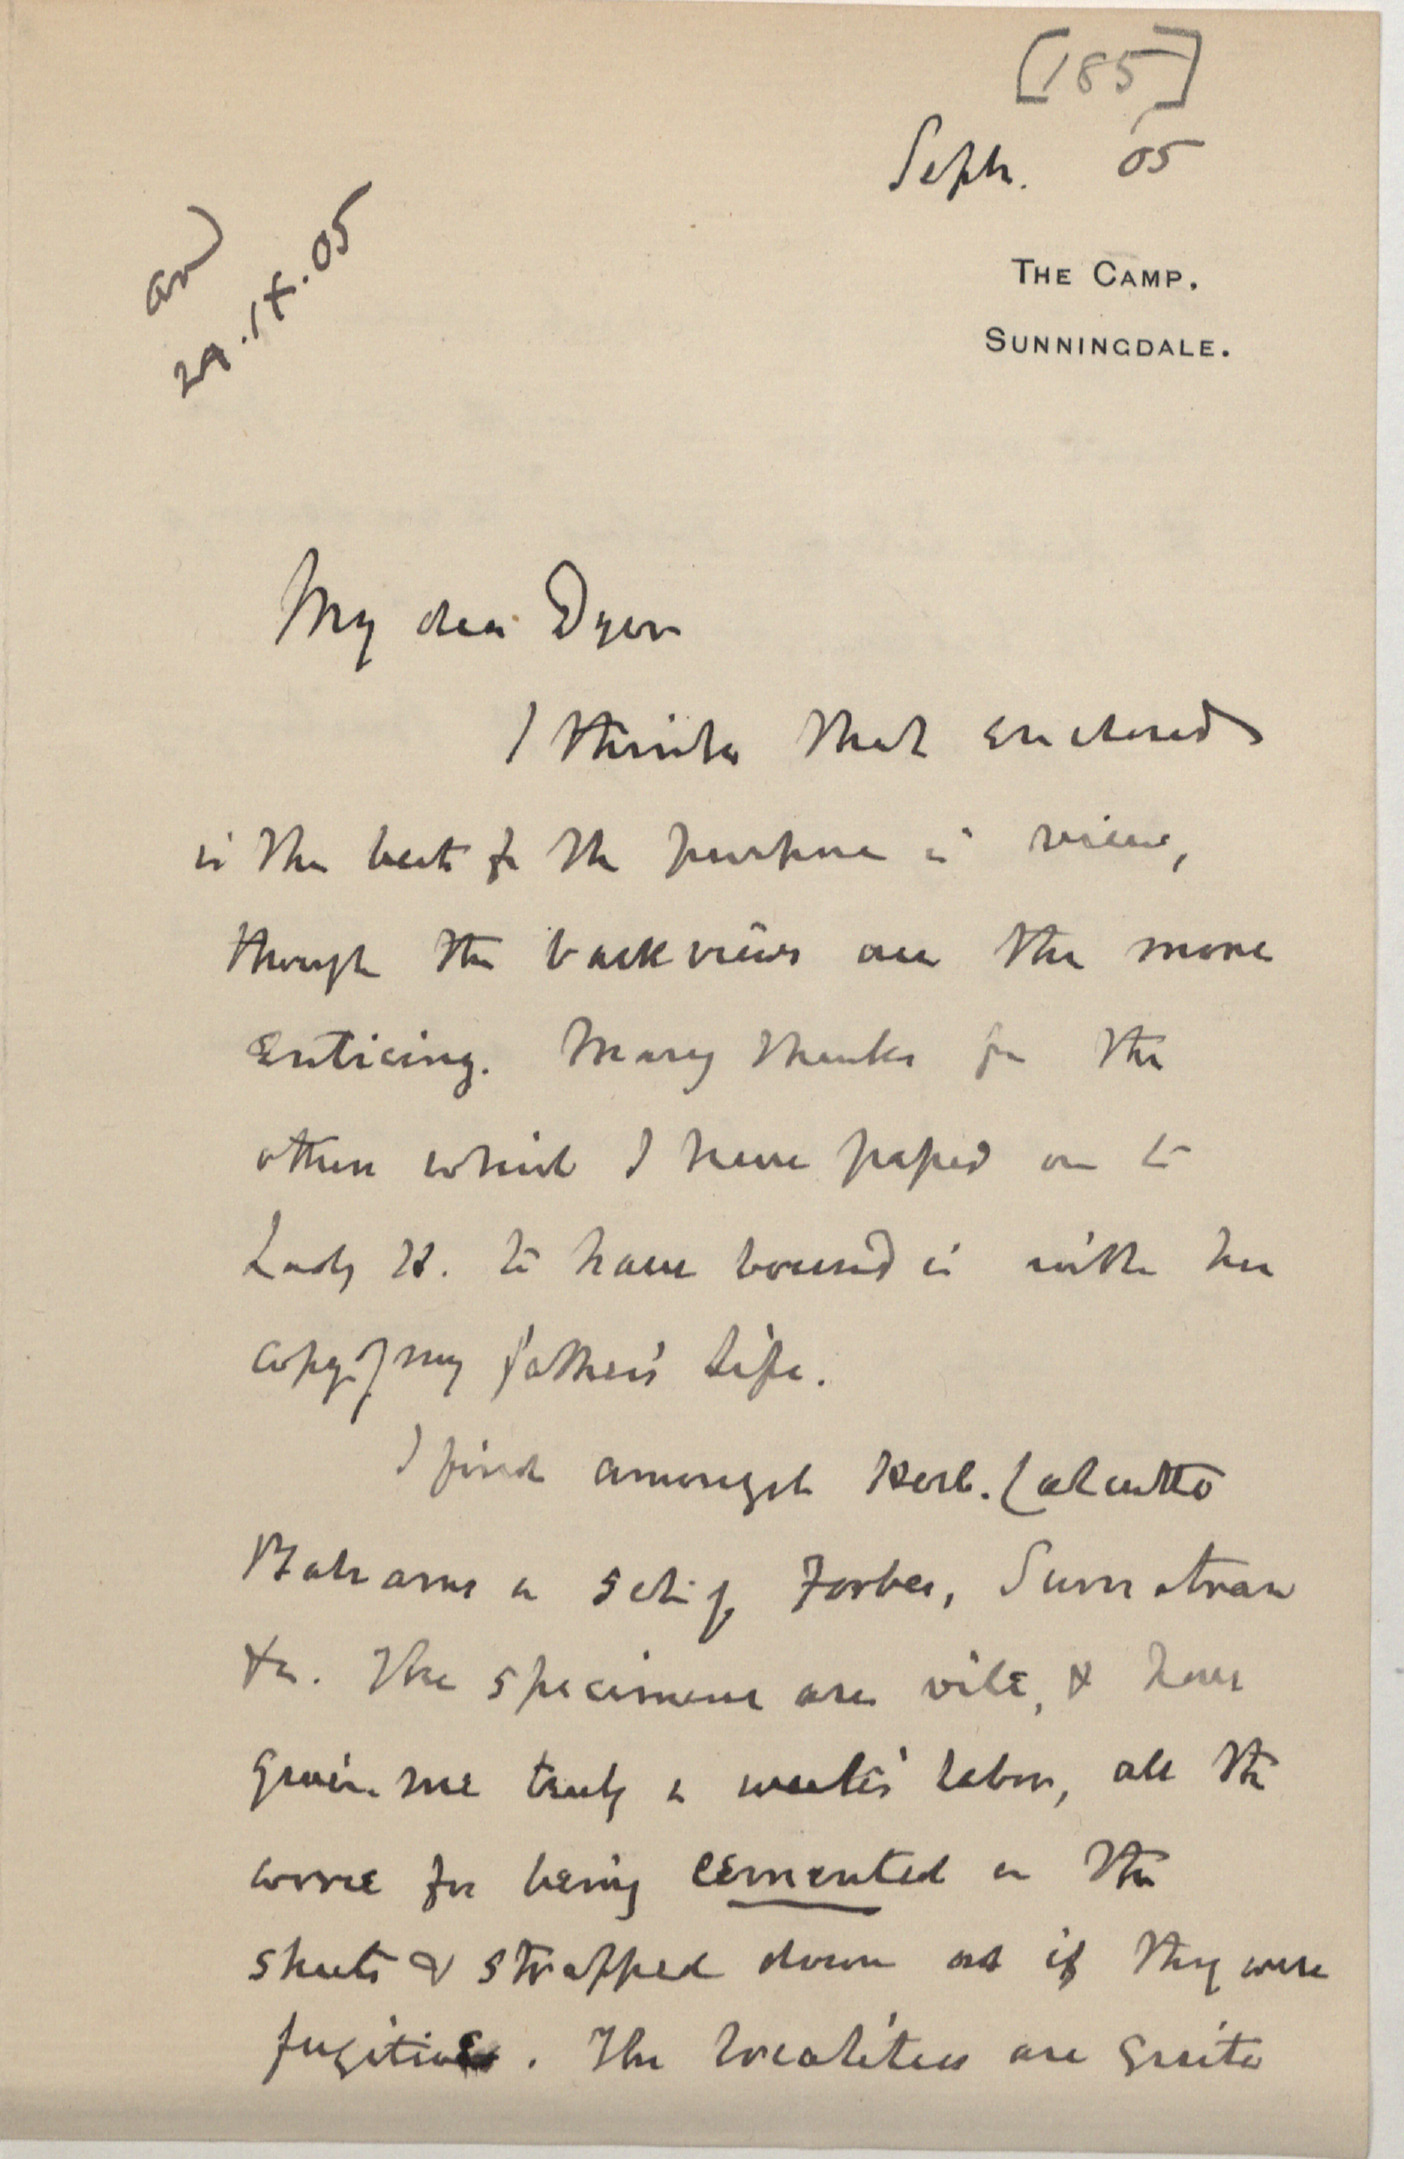 [185]
Sept. '05
an)
29.IX.05
THE CAMP.
SUNNINGDALE.
My dear Dyer
I think that enclosed
is the best for the purpose in view,
though the back views are the more
enticing. Many thanks for the
other which I have passed on to
Lady H. to have bound in with her
copy of my father's life.
I find amongst Herb. Calcutta
Balsams a set of Forbes, Sumatran
&c. The specimens are vile, & have
given me truly a week's labor, all the
worse for being cemented on the
sheets & strapped down as if they were
fugitives. The localities are quite